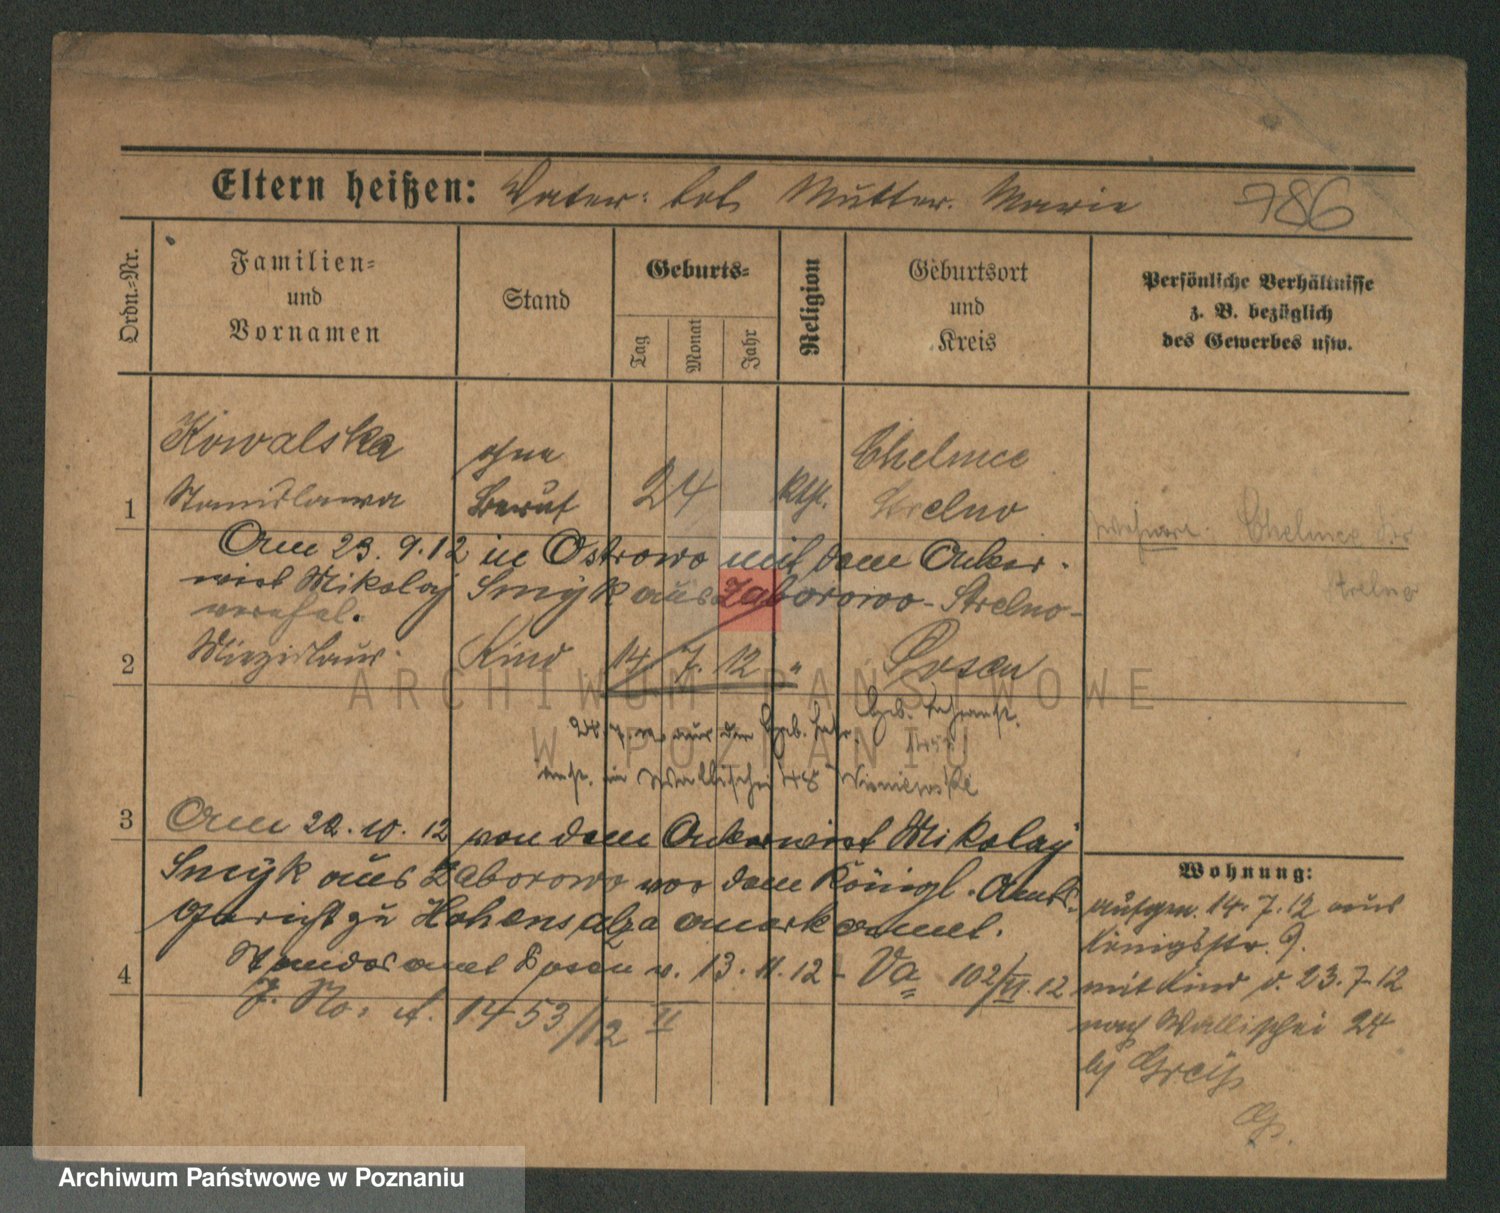 Eltern heißen: Vater: tot, Mutter: Marie 786
Ordn.-Nr.
Familien-
und
Vornamen
Stand
Geburts-
Tag
Monat
Jahr
Religion
Geburtsort
und
Kreis
Persönliche Verhältnisse
z. B. bezüglich
des Gewerbes usw.
Kowalska ohne Chelmce
1 Stanislawa Beruf 24 kth. Strelno
Chelmce
Strelno
Am 23. 9. 12 in Ostrowo mit dem Acker-
wirt Mikolaj Smyk aus Zaborowo-Strelno-
verehel.
2 Miezislaus Kind 14/7. 12 " Posen
aus der Geb.
in Wallischei 48
3 Am 22. 10. 12 von dem Ackerwirt Mikolaj
Smyk aus Zaborowo vor dem Königl. Amts-
gericht zu Hohensalza anerkannt.
4 Standesamt Posen v. 13. 11. 12 - Va 102/VI. 12
J. No. A. 1453/12 II
Wohnung:
14. 7. 12 aus
Königsstr. 9.
mit Kind v. 23. 7. 12
nach Wallischei 24
bei
ARCHIWUM PAŃSTWOWE
W POZNANIU
Archiwum Państwowe w Poznaniu